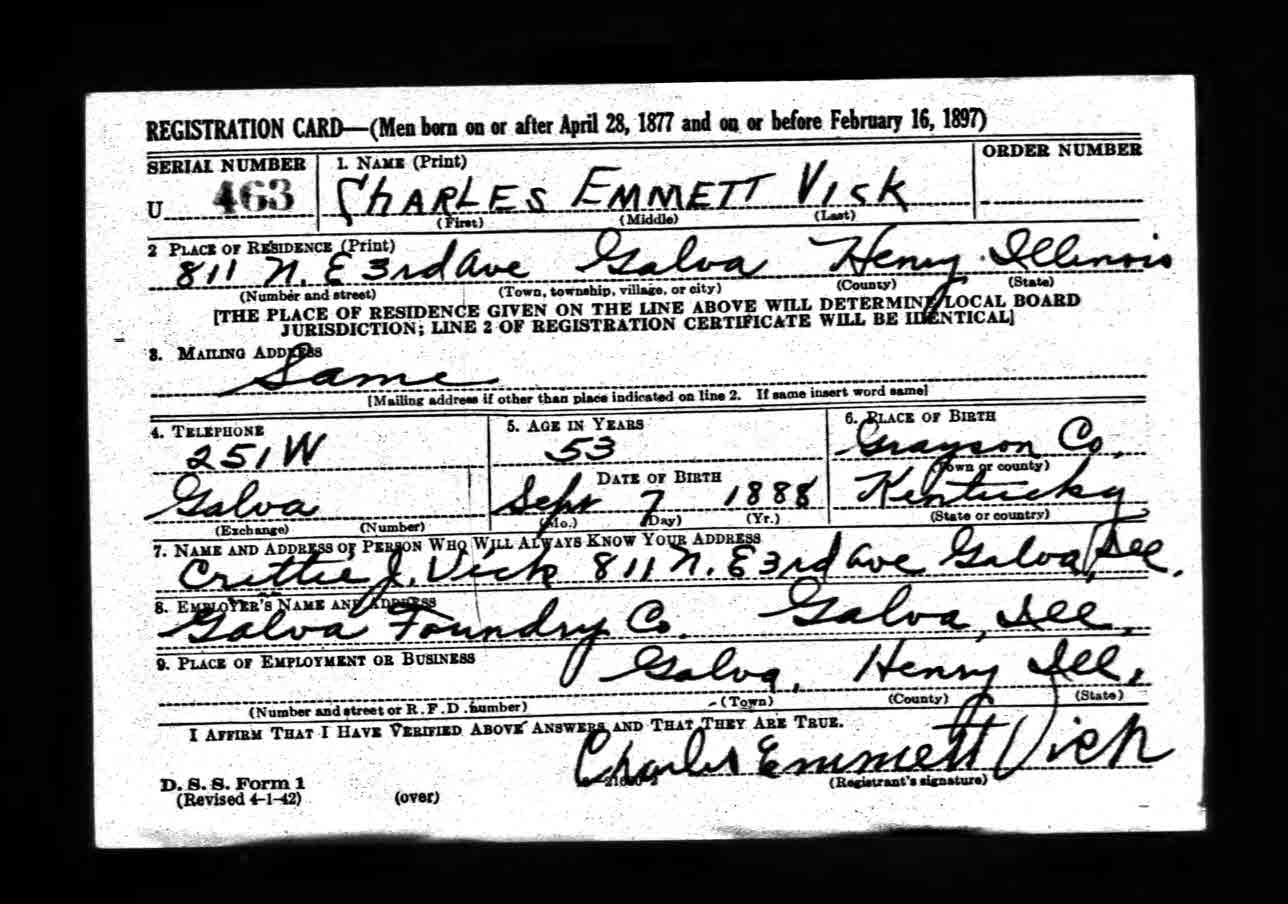 REGISTRATION CARD—(Men born on or after April 28, 1877 and on or before February 16, 1897)
SERIAL NUMBER
1. NAME (Print)
ORDER NUMBER
U 463
CHARLES EMMETT VICK
(First) (Middle) (Last)
2 PLACE OF RESIDENCE (Print)
811 N. E 3rd Ave Galva Henry Illinois
(Number and street) (Town, township, village, or city) (County) (State)
[THE PLACE OF RESIDENCE GIVEN ON THE LINE ABOVE WILL DETERMINE LOCAL BOARD
JURISDICTION; LINE 2 OF REGISTRATION CERTIFICATE WILL BE IDENTICAL]
3. MAILING ADDRESS
Same
[Mailing address if other than place indicated on line 2. If same insert word same]
4. TELEPHONE
251 W
Galva
(Exchange) (Number)
5. AGE IN YEARS
53
DATE OF BIRTH
Sept 7 1888
(Mo.) (Day) (Yr.)
6. PLACE OF BIRTH
Grayson Co.
(Town or county)
Kentucky
(State or country)
7. NAME AND ADDRESS OF PERSON WHO WILL ALWAYS KNOW YOUR ADDRESS
Crittie J. Vick 811 N. E 3rd ave Galva, Ill.
8. EMPLOYER'S NAME AND ADDRESS
Galva Foundry Co. Galva, Ill.
9. PLACE OF EMPLOYMENT OR BUSINESS
Galva, Henry Ill.
(Number and street or R. F. D. number) (Town) (County) (State)
I AFFIRM THAT I HAVE VERIFIED ABOVE ANSWERS AND THAT THEY ARE TRUE.
Charles Emmett Vick
D. S. S. Form 1
(Revised 4-1-42)
(over)
(Registrant's signature)